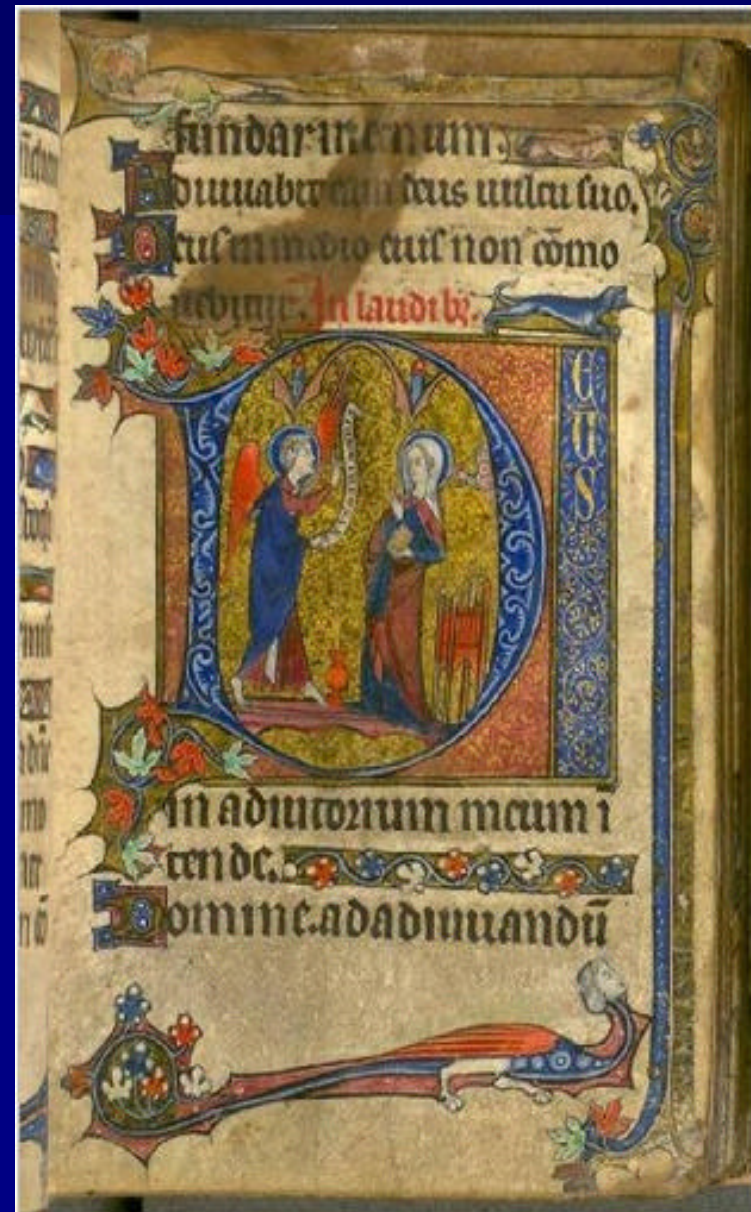 in
Adiuuabit eam deus uultu suo.
Deus in medio eius non cōmo
uebitur. In laudibꝫ.
DEUS
in adiutorium meum i
tende.
Domine.ad adiuuandū